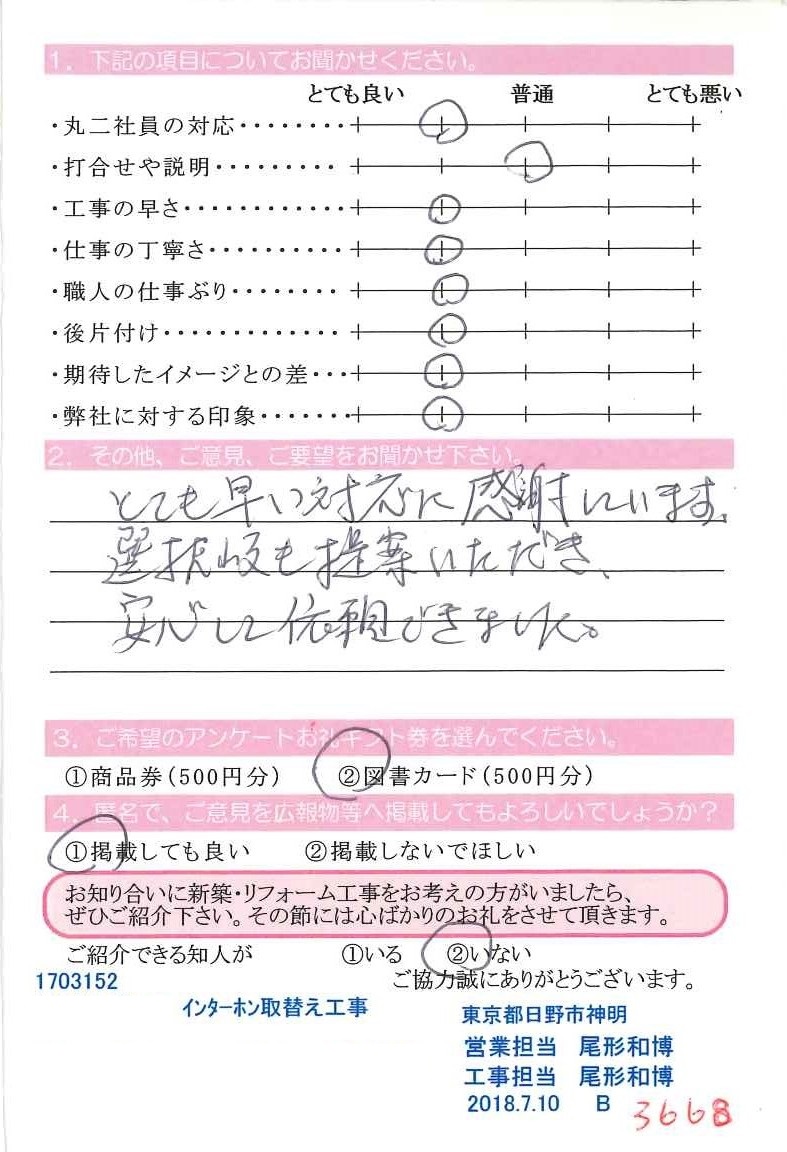 1．下記の項目についてお聞かせください。
とても良い 普通 とても悪い
・丸二社員の対応・・・・・・・・
・打合せや説明・・・・・・・・・
・工事の早さ・・・・・・・・・・・・
・仕事の丁寧さ・・・・・・・・・・
・職人の仕事ぶり・・・・・・・・
・後片付け・・・・・・・・・・・・・
・期待したイメージとの差・・・
・弊社に対する印象・・・・・・・
2．その他、ご意見、ご要望をお聞かせ下さい。
とても早い対応に感謝しています。
選択肢も提案いただき、
安心して依頼できました。
3．ご希望のアンケートお礼ギフト券を選んでください。
①商品券(500円分) ②図書カード(500円分)
4．匿名で、ご意見を広報物等へ掲載してもよろしいでしょうか？
①掲載しても良い ②掲載しないでほしい
お知り合いに新築・リフォーム工事をお考えの方がいましたら、
ぜひご紹介下さい。その節には心ばかりのお礼をさせて頂きます。
ご紹介できる知人が ①いる ②いない
1703152 ご協力誠にありがとうございます。
インターホン取替え工事
東京都日野市神明
営業担当 尾形和博
工事担当 尾形和博
2018.7.10 B 3668